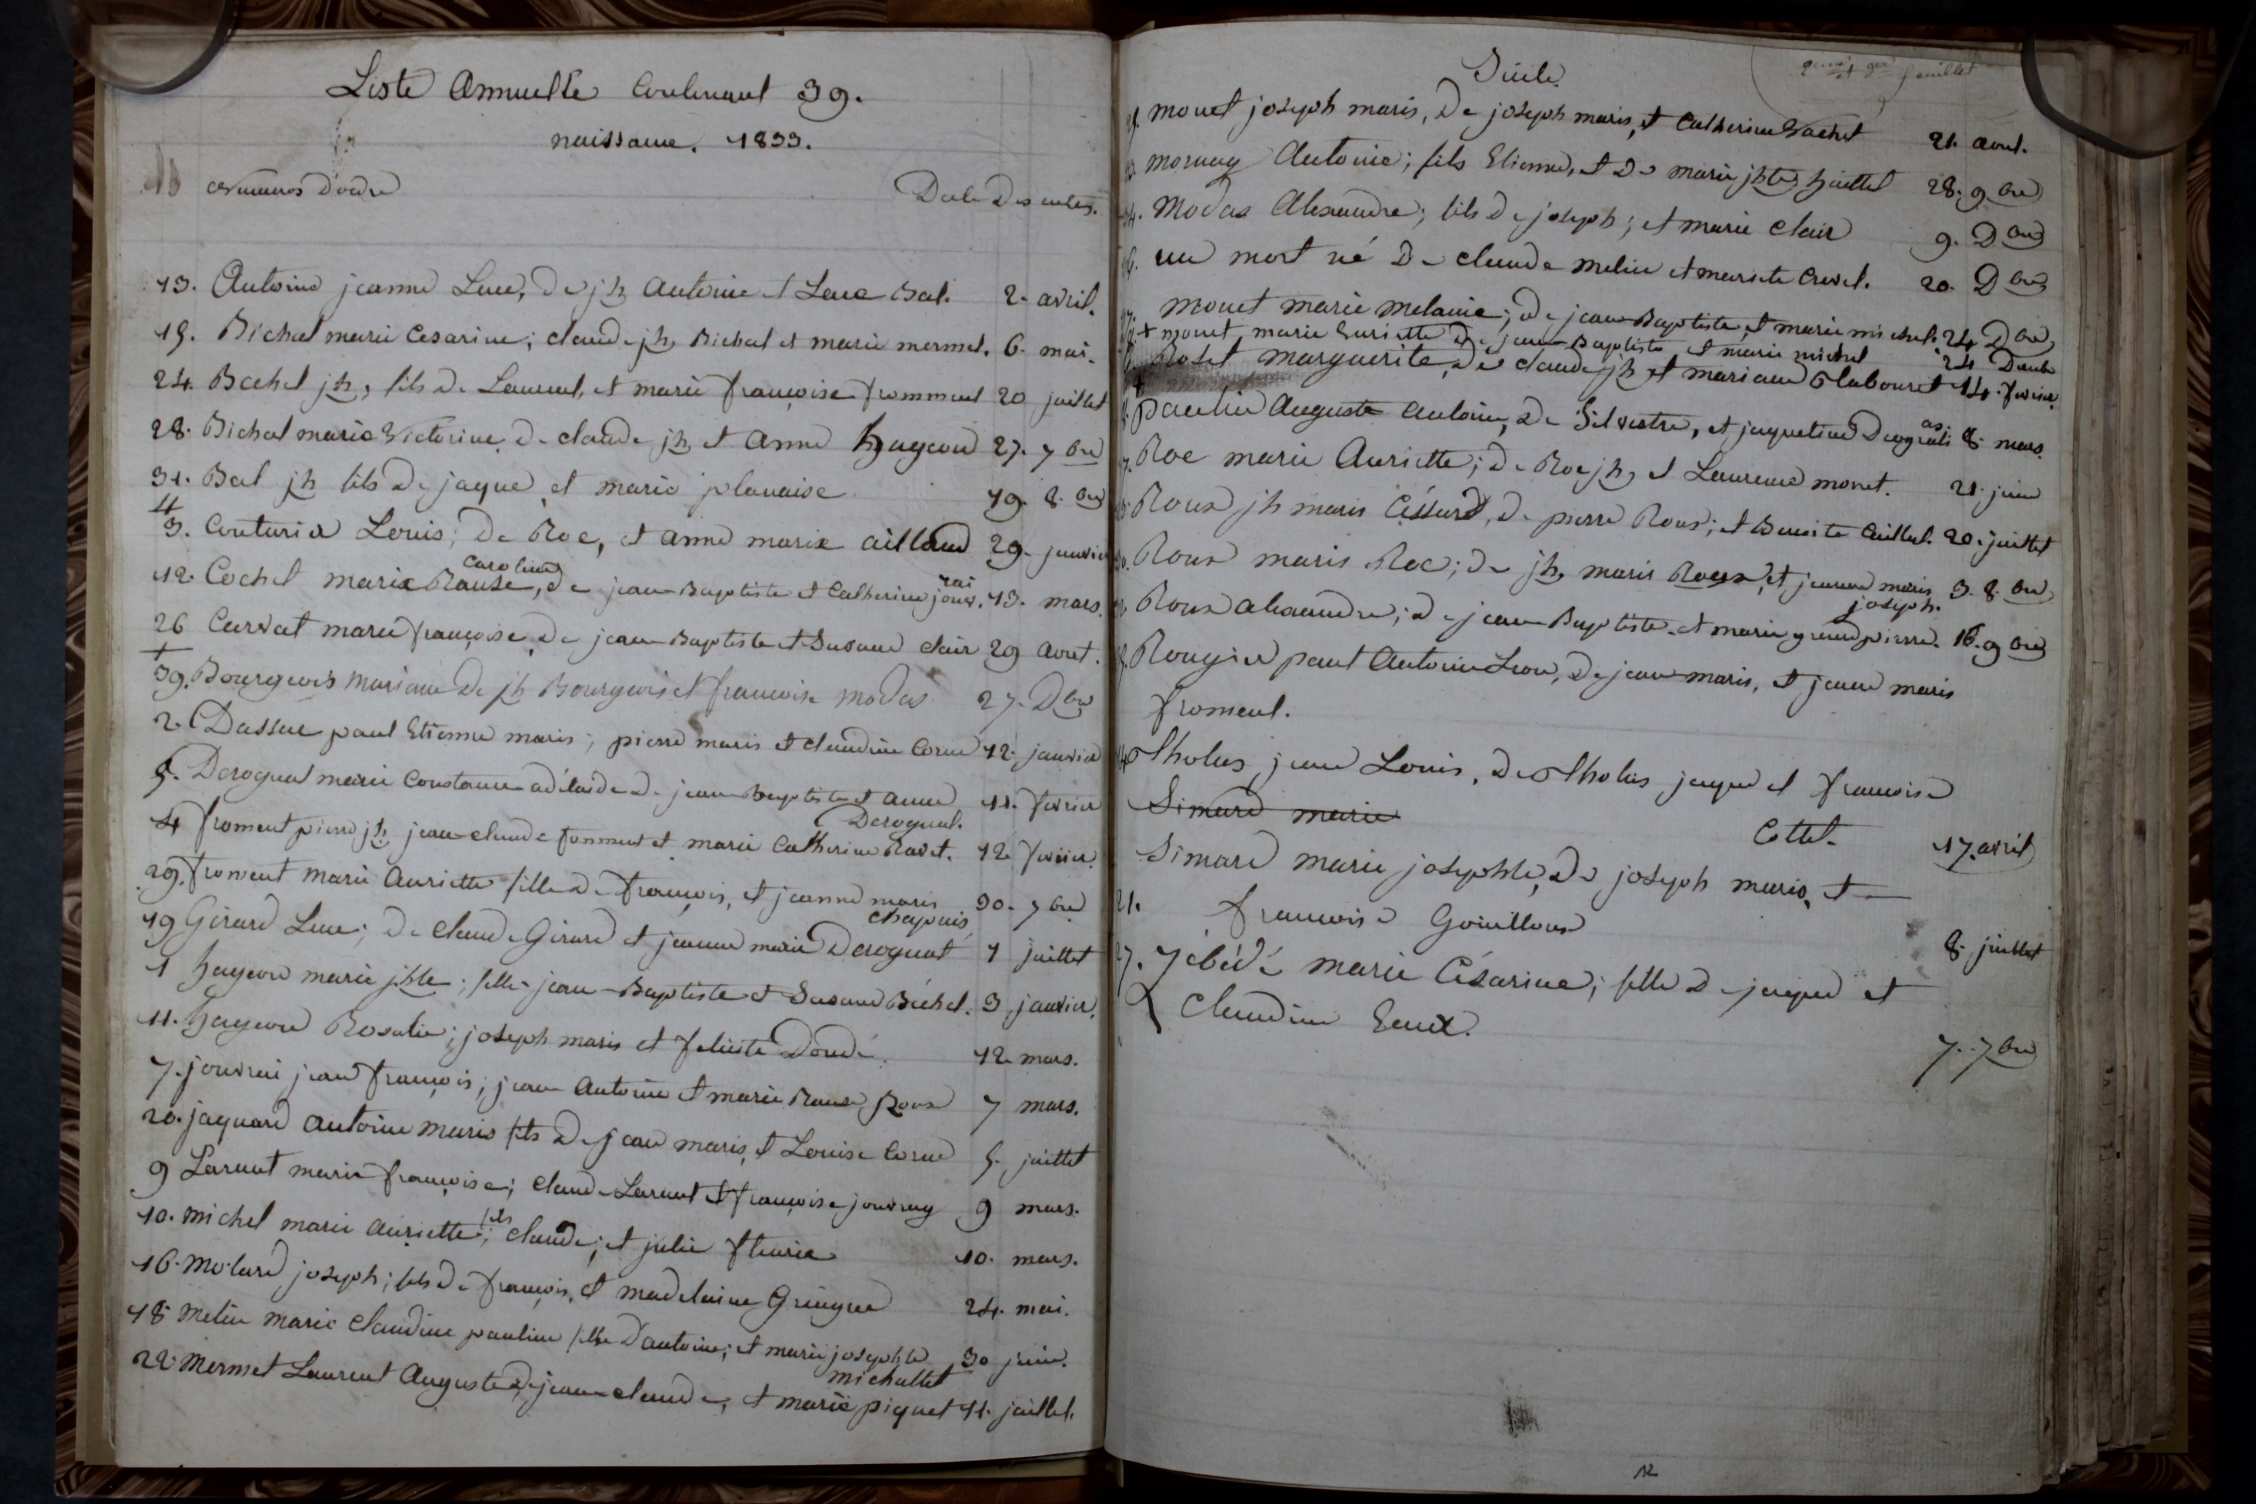 Liste Annuelle Contenant 39.
naissance. 1833.
numeros d'ordre Date des actes.
13. Antoine jeanne Luce, de jh Antoine et Luce Bal. 2. avril.
15. Bichat marie Cesarine; claude jh Bichat et marie mermet. 6. mai.
24. Bachel jh, fils de Laurent, et marie françoise fromment 20 juillet
28. Bichat marie Victorine de claude jh et Anne hugeon 27. 7 bre
31. Bal jh fils de jaque et marie plavaise 19. 8. bre
3. Couturier Louis; de Roc, et anne marie aillaud 29. janvier
caroline
12. Cochet marie Rause, de jean Baptiste et Catherine jouvrai. 13. mars.
26 Curvat marie françoise de jean Baptiste et Susane clair 29 Aout.
39. Bourgeois mariane de jh Bourgeois et francoise modas 27. Dbre
2. Dassue paul Etienne marie; pierre marie et claudine Corne 12. janvier
5. Derognat marie Constance adélaïde de jean Baptiste et anne 11. fevrier
Derognat.
4 froment pierre jh jean claude fromment et marie Catherine Ravet. 12 fevrier.
29. froment marie Auriette fille de françois, et jeanne marie 30. 7 bre
chapuis,
19 Girard Luce; de Claude Girard et jeanne marie Derognat 1 juillet
1 hugeon marie jhte; fille jean Baptiste et Susane Bichel. 3 janvier.
11. hugeon Rosalie; joseph marie et feliste Doudé. 12 mars.
7. jouvrai jean françois; jean Antoine et marie Rause Roux 7 mars.
20. jaquard antoine marie fils de jean marie, et Louise Corne 5. juillet
9 Laruat marie françoise; claude Laruat et françoise jouvray 9 mars.
10. michel marie auriette; fils claude; et julie fleurie 10. mars.
16. Molard joseph; fils de françois, et madelaine Gringue 24. mai.
18 Melin marie Claudine pauline fille d'antoine; et marie josephte 30 juin.
michallet
22 Mermet Laurent Auguste de jean claude, et marie piquet 11. juillet.
Suite
monet joseph marie, de joseph marie, et Catherine Vachet 21. aout.
mornay Antoine; fils Etienne, et de marie jhte huillet 28. 9 bre
Modas Alexandre; fils de joseph; et marie clair 9. D bre
un mort né de claude melin et mariete Crevel. 20. D bre
monet marie melanie; de jean Baptiste, et marie michel. 24 D bre
+ monet marie huriette de jean Baptiste et marie michel 24 Dbre
Rosel marguerite, de claude jh et mariane Labouret 14. fevrier.
paulin Auguste antoine, de Silvestre, et jaqueline Deogratias. 8. mars.
Roc marie Auriette; de Roc jh, et Laurence monet. 21. juin
Roux jh marie Césard, de pierre Roux; et Benoite Caillat. 20. juillet
Roux marie Roc; de jh marie Roux, et jeanne marie 3. 8. bre
joseph.
Roux alexandre; de jean Baptiste et marie grand pierre. 16. 9 bre
Rougier paul Antoine Leon, de jean marie, et jeanne marie
froment.
tholus jean Louis, de tholus jaque et francoise
Simard marie
Cottet. 17. avril
Simard marie josephte, de joseph marie, et
21. francoise Goinilloux 8. juillet
27. Zébédé marie Césarine; fille de jaque et
Claudine Eaux. 7. 7 bre
12